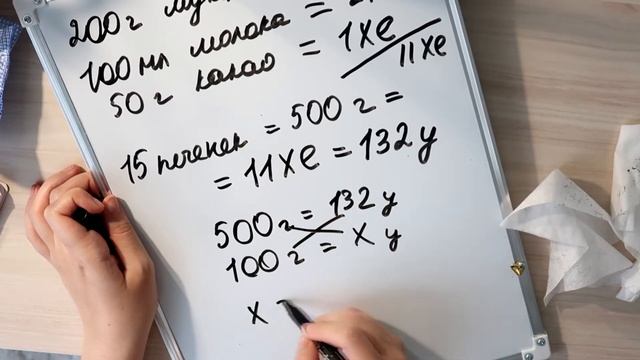 200 г
100 мл молока =
50 г какао = 1 ХЕ
11 ХЕ
15 печенек = 500 г =
= 11 ХЕ = 132 у
500 г = 132 у
100 г = х у
х